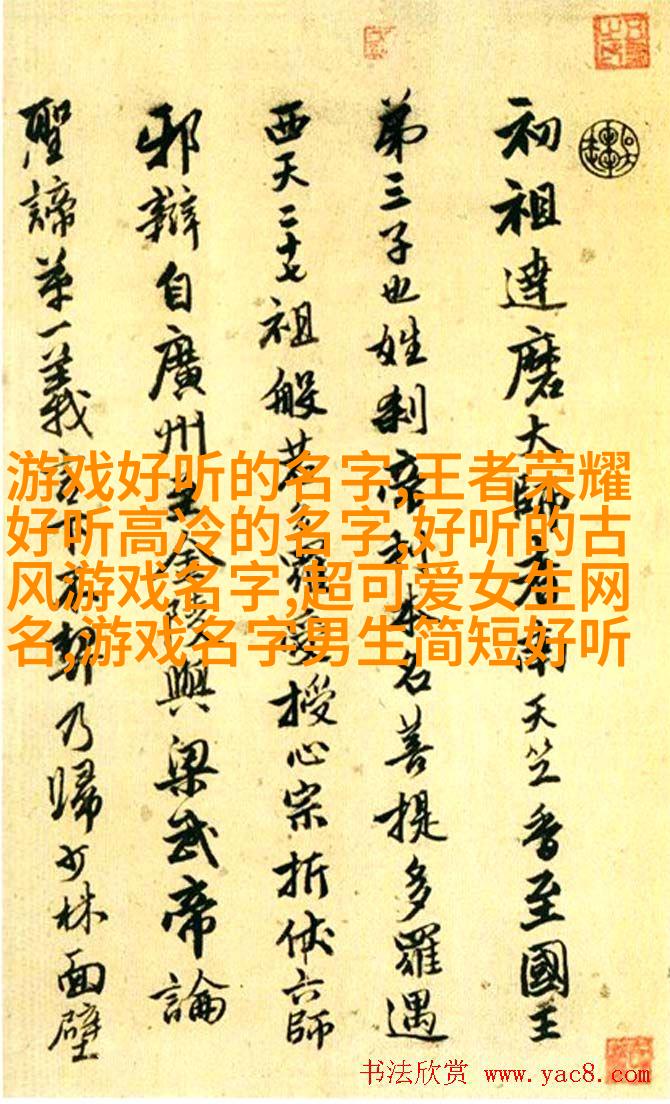 初祖達磨大師者南天竺香至國王
第三子也姓刹帝利本名菩提多羅遇
西天二十七祖般若多羅授心宗折伏六師
邪辯自廣州至金陵與梁武帝論
聖諦第一義言不契乃歸少林面壁
游戏好听的名字,王者荣耀
好听高冷的名字,好听的古
风游戏名字,超可爱女生网
名,游戏名字男生简短好听
书法欣赏 www.yac8.com